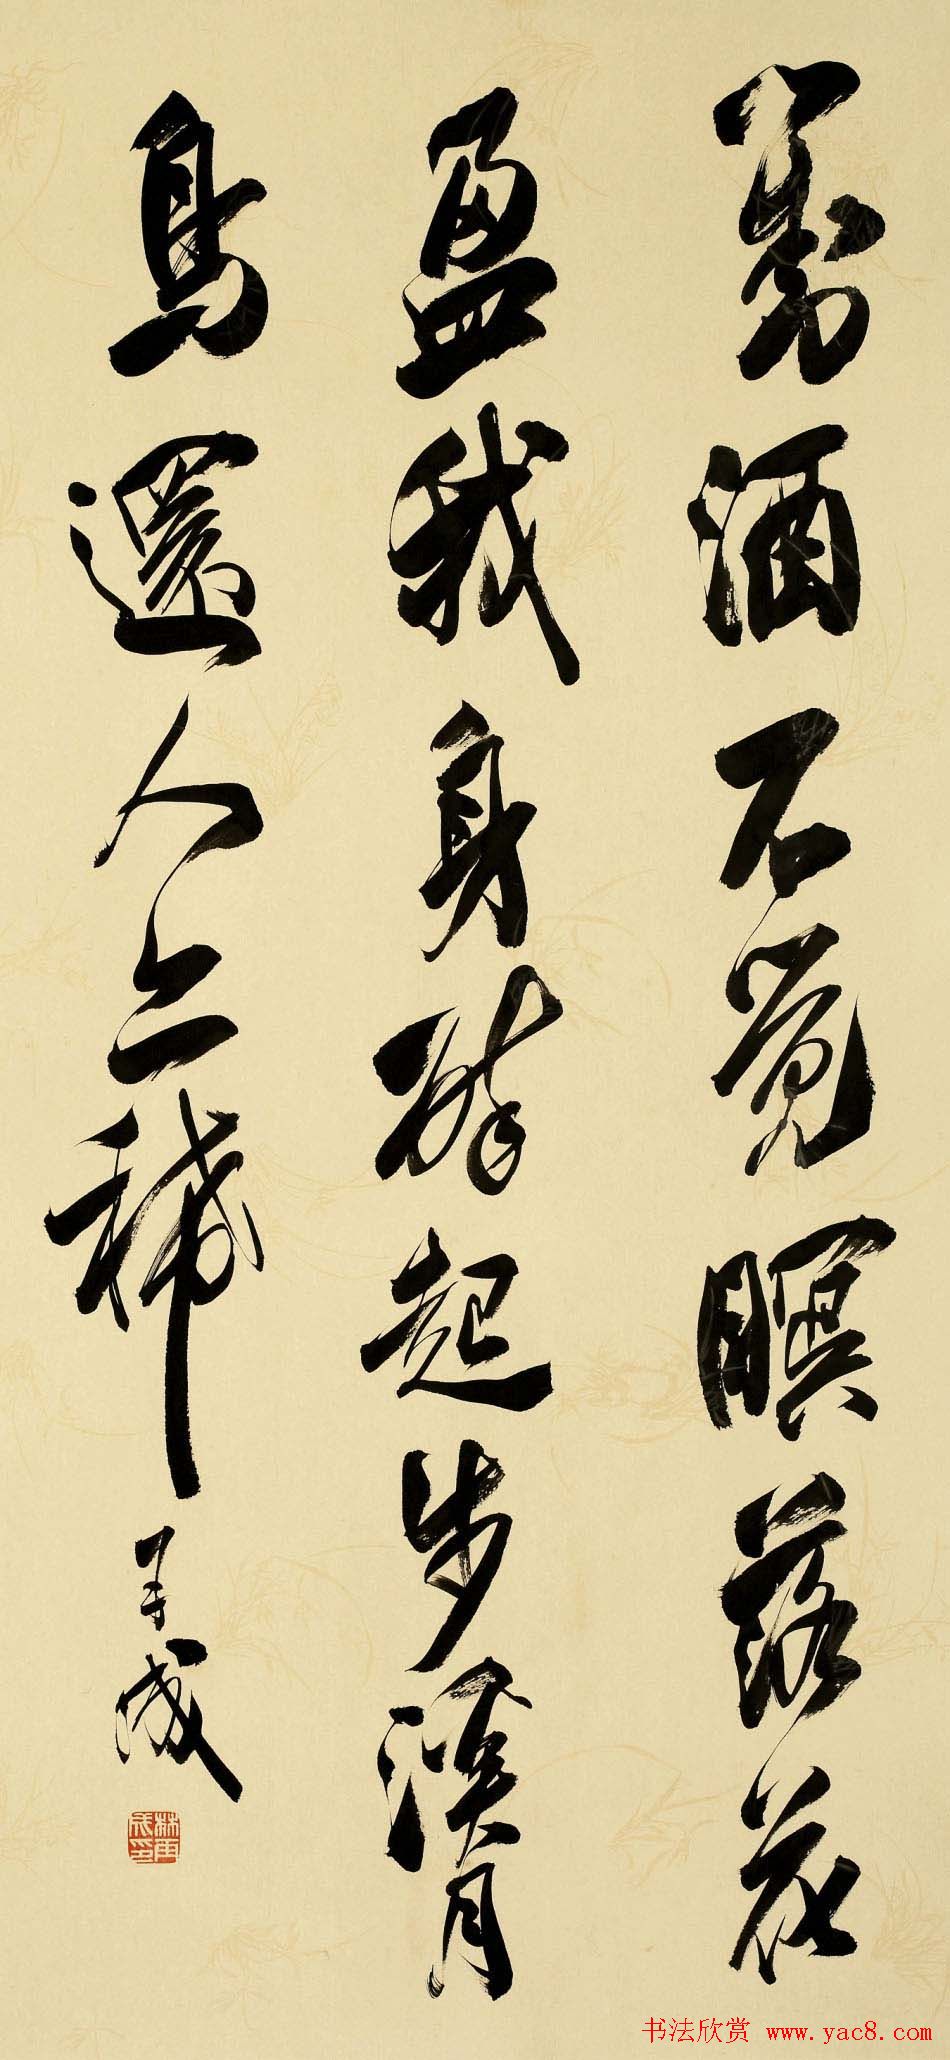 對酒不覺瞑落花
盈我身醉起步溪月
鳥還人亦稀
再成
林再成印
书法欣赏 www.yac8.com